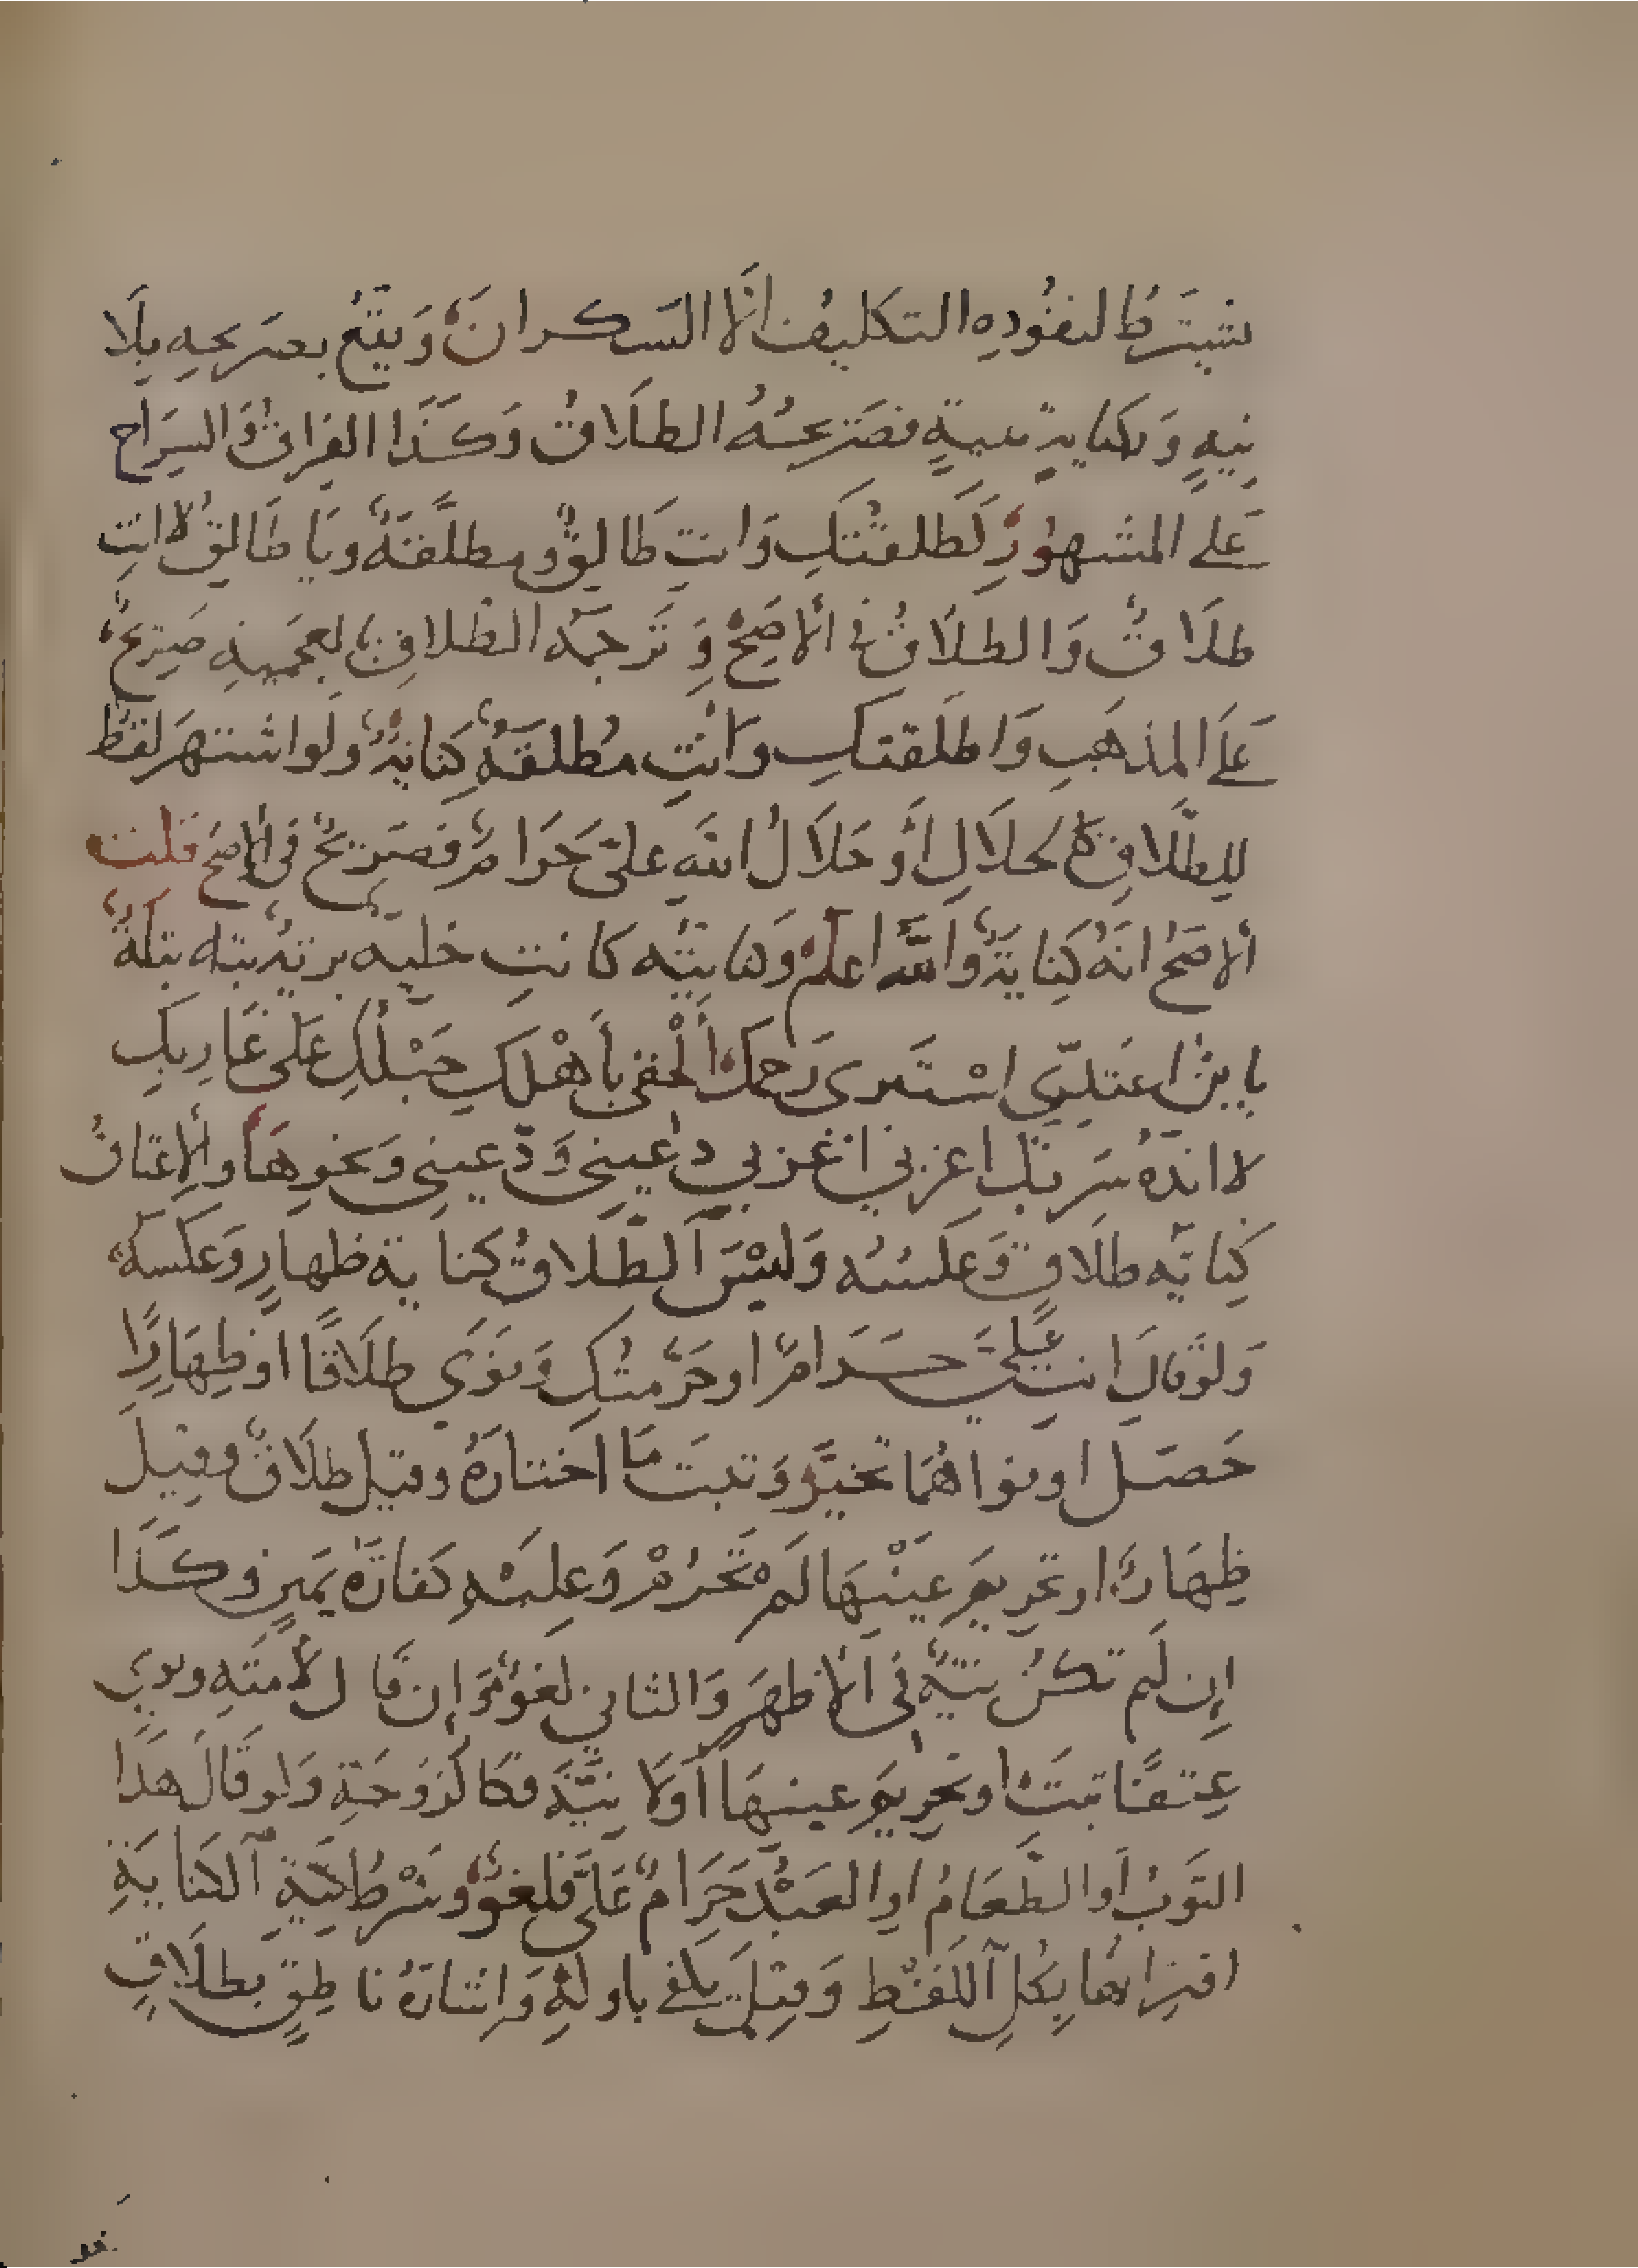 يشترط لنفوذه التكليف الا السكران ويقع بصريحه بلا
نية وبكناية بنية فصريحه الطلاق وكذا الفراق والسراح
على المشهور كطلقتك وانت طالق ومطلقة ويا طالق لا انت
طلاق والطلاق في الاصح وترجمة الطلاق بالعجمية صريح
على المذهب واطلقتك وانت مطلقة كناية ولو اشتهر لفظ
للطلاق كالحلال او حلال الله علي حرام فصريح في الاصح قلت
الاصح انه كناية والله اعلم وكنايته كانت خلية برية بتة بتلة
باين اعتدي استبرى رحمك الحقي باهلك حبلك على غاربك
لا انده سربك اعزبي اغربي دعيني ودعيني ونحوها والاعتاق
كناية طلاق وعكسه وليس الطلاق كناية ظهار وعكسه
ولو قال انت علي حرام او حرمتك ونوى طلاقا او ظهارا
حصل او نواهما تخير وثبت ما اختاره وقيل طلاق وقيل
ظهار او تحريم عينها لم تحرم وعليه كفارة يمين وكذا
ان لم تكن نية في الاظهر والثاني لغو وان قال لامته ونوى
عتقا ثبت او تحريم عينها او لا نية فكالزوجة ولو قال هذا
الثوب او الطعام او العبد حرام علي فلغو وشرط نية الكناية
اقترانها بكل اللفظ وقيل يكفي باوله واشارة ناطق بطلاق